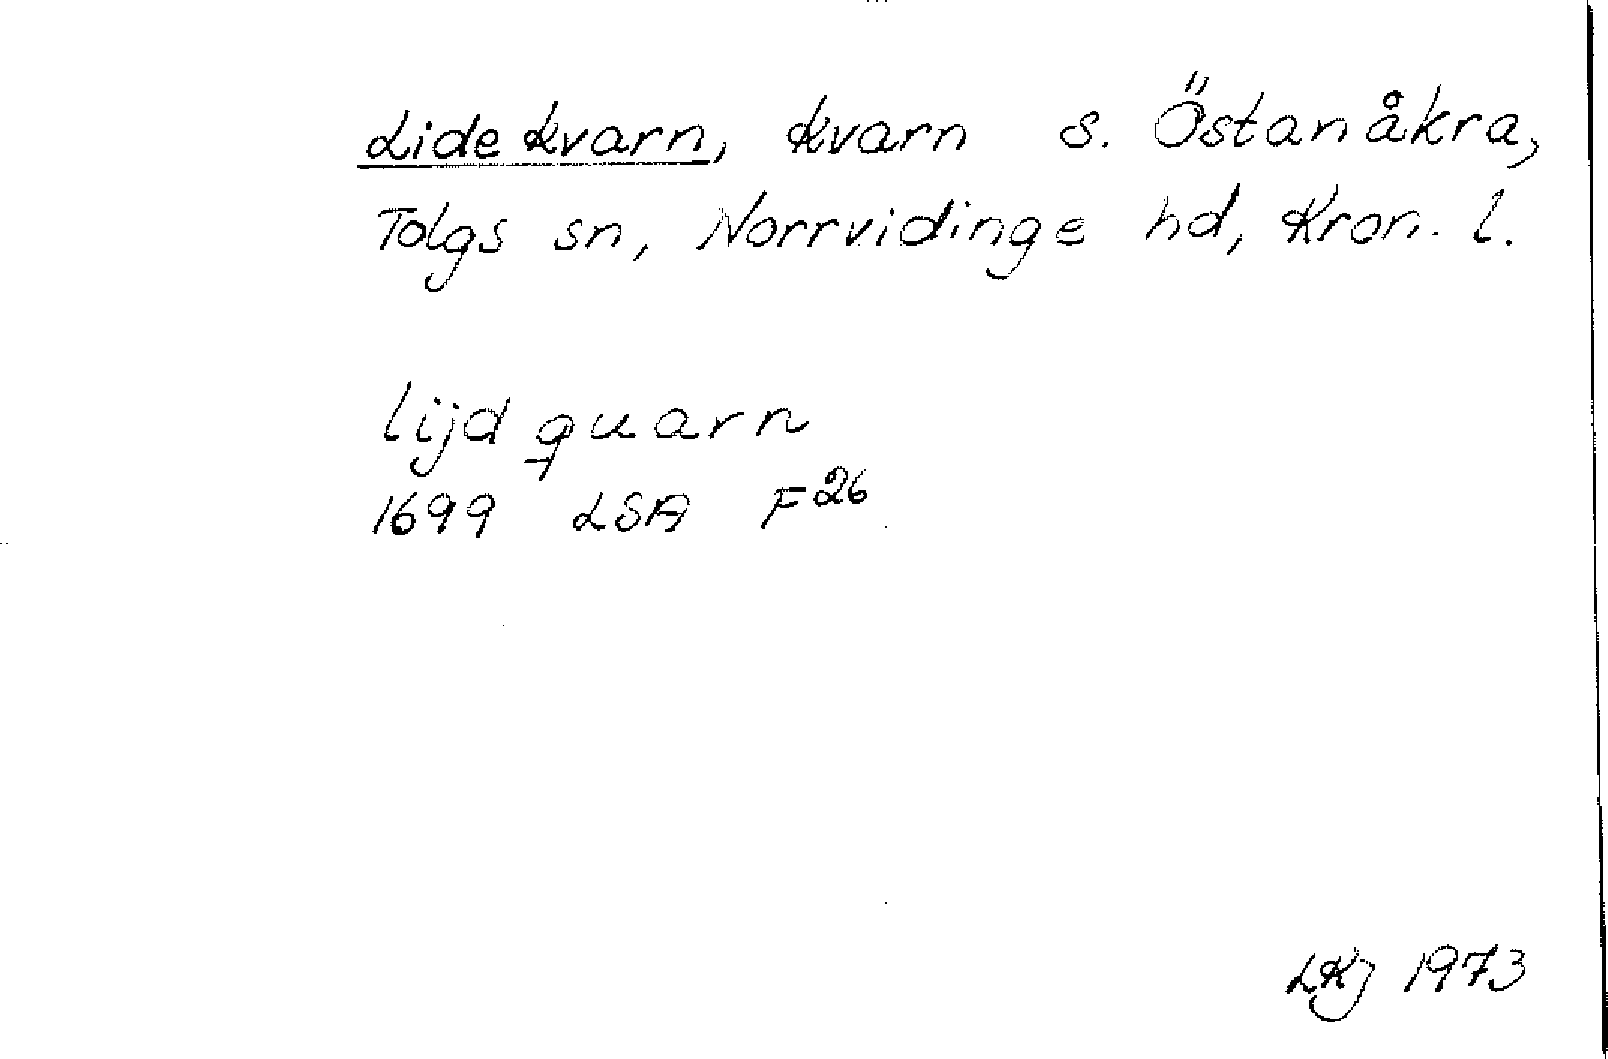 Lidekvarn, kvarn s. Östanåkra,
Tolgs sn, Norrvidinge hd, Kron. l.
lijd quarn
1699 LSA F26
LKj 1973